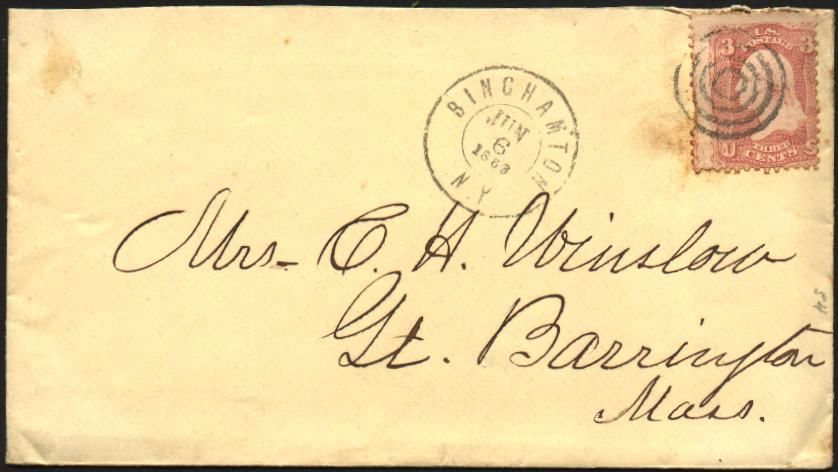 BINGHAMTON
JUN
6
N.Y.
3 U.S. 3
POSTAGE
U THREE S
CENTS
Mrs- C. H. Winslow
Gt. Barrington
Mass.